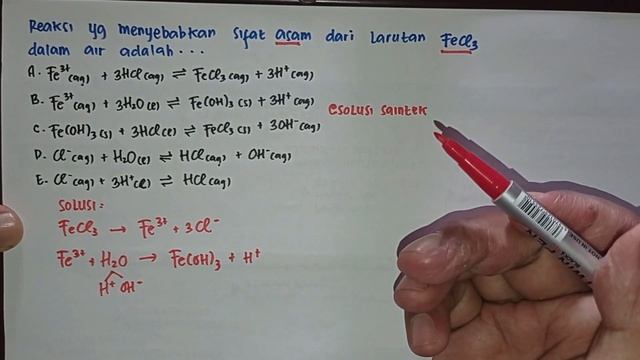 Reaksi yg menyebabkan sifat asam dari larutan FeCl₃
dalam air adalah ...
A. Fe³⁺(aq) + 3HCl(aq) ⇌ FeCl₃(aq) + 3H⁺(aq)
B. Fe³⁺(aq) + 3H₂O(l) ⇌ Fe(OH)₃(s) + 3H⁺(aq)
@solusi saintek
C. Fe(OH)₃(s) + 3HCl(l) ⇌ FeCl₃(s) + 3OH⁻(aq)
D. Cl⁻(aq) + H₂O(l) ⇌ HCl(aq) + OH⁻(aq)
E. Cl⁻(aq) + 3H⁺(l) ⇌ HCl(aq)
SOLUSI:
FeCl₃ → Fe³⁺ + 3Cl⁻
Fe³⁺ + H₂O → Fe(OH)₃ + H⁺
H⁺ OH⁻